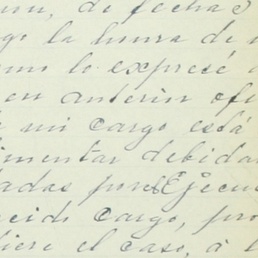 de fecha 3
go la honra de
lo expresé
en anterior ofi
mi cargo está
imentar debida
adas por Ejecu
cido cargo, pro
diere el caso, á l